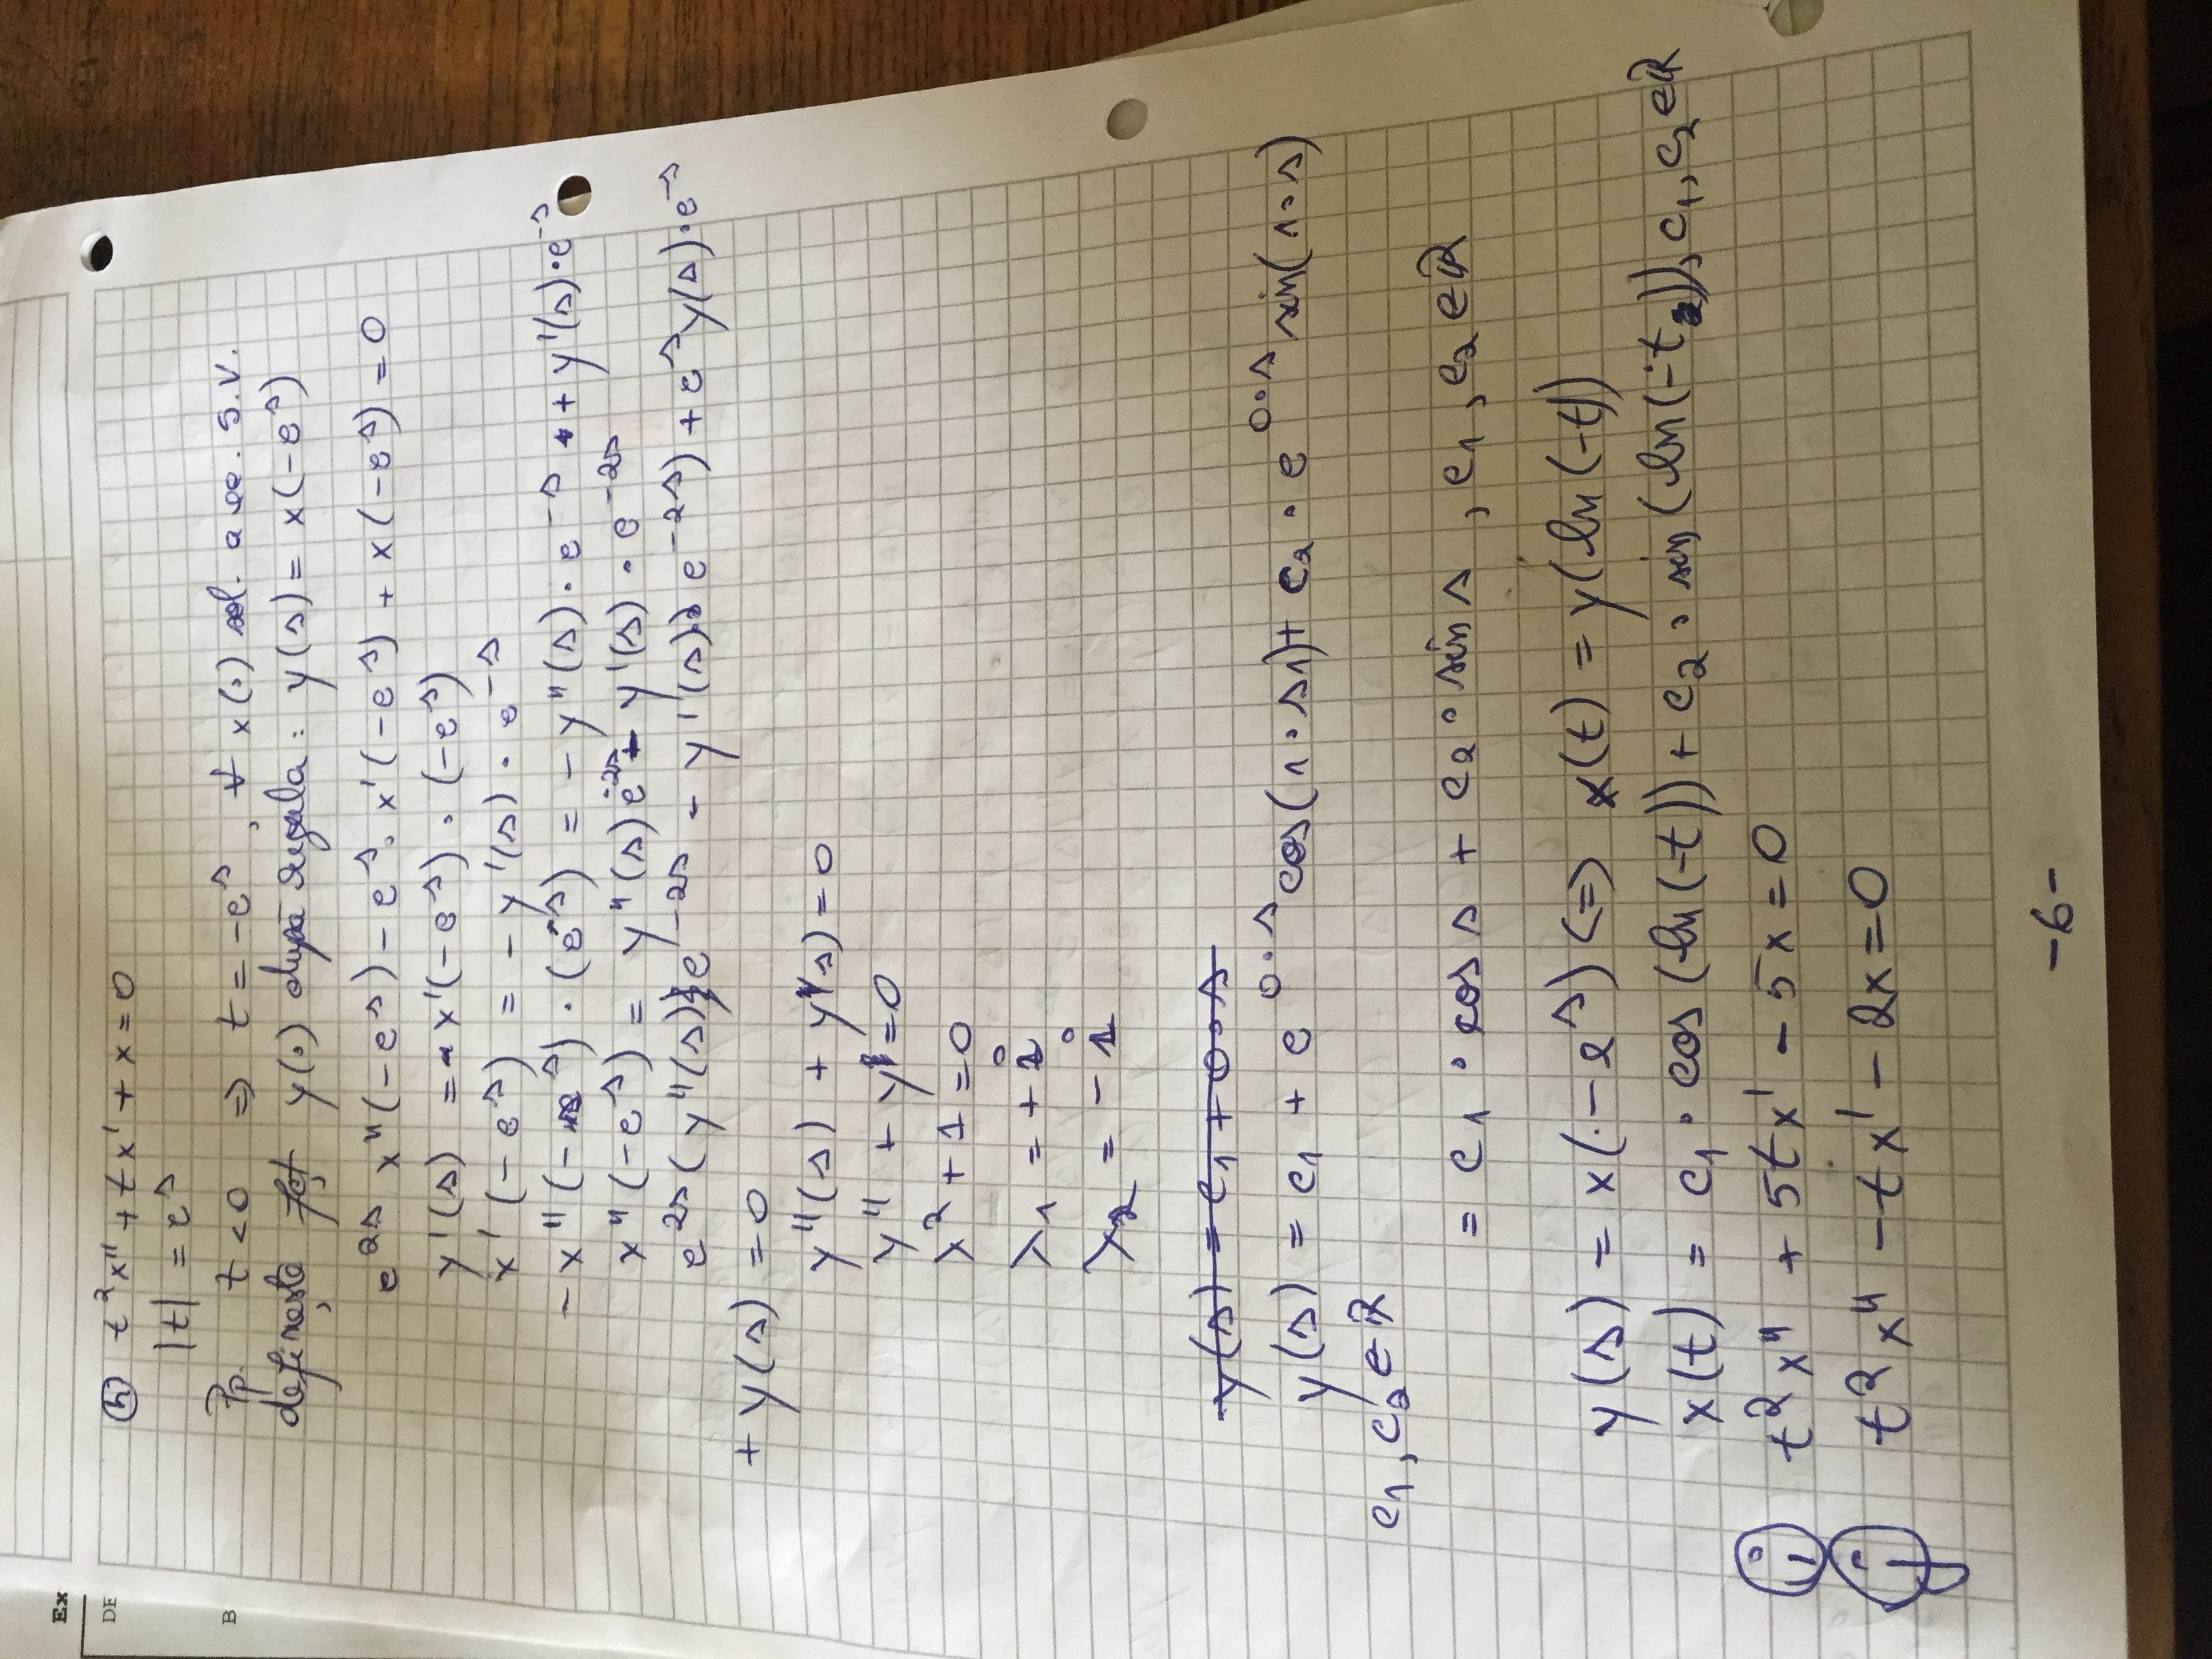 Ex
DE
B
(h) t²x" + tx' + x = 0
|t| = e^s
Pp. t < 0 ⇒ t = -e^s, ∀ x(·) sol. a ec. S.V.
definește fct y(·) după regula: y(s) = x(-e^s)
e^2s x"(-e^s) - e^s · x'(-e^s) + x(-e^s) = 0
y'(s) = x'(-e^s) · (-e^s)
x'(-e^s) = - y'(s) · e^-s
- x"(-e^s) · (e^s) = - y"(s) · e^-s + y'(s) · e^-s
x"(-e^s) = y"(s) e^-2s - y'(s) · e^-2s
e^2s (y"(s) e^-2s - y'(s) · e^-2s) + e^s y(s) · e^-s
+ y(s) = 0
y"(s) + y(s) = 0
y" + y = 0
λ² + 1 = 0
λ₁ = + i
λ₂ = - i
y(s) = c₁ + 0 · s
y(s) = c₁ + e^0·s cos(1 · s1) + c₂ · e^0·s sin(1 · s)
c₁, c₂ ∈ ℝ
= c₁ · cos s + c₂ · sin s, c₁, c₂ ∈ ℝ
y(s) = x(·-e^s) ⇔ x(t) = y(ln(-t))
x(t) = c₁ · cos(ln(-t)) + c₂ · sin(ln(-t)), c₁, c₂ ∈ ℝ
(i) t²x" + 5tx' - 5x = 0
(j) t²x" - tx' - 2x = 0
-6-